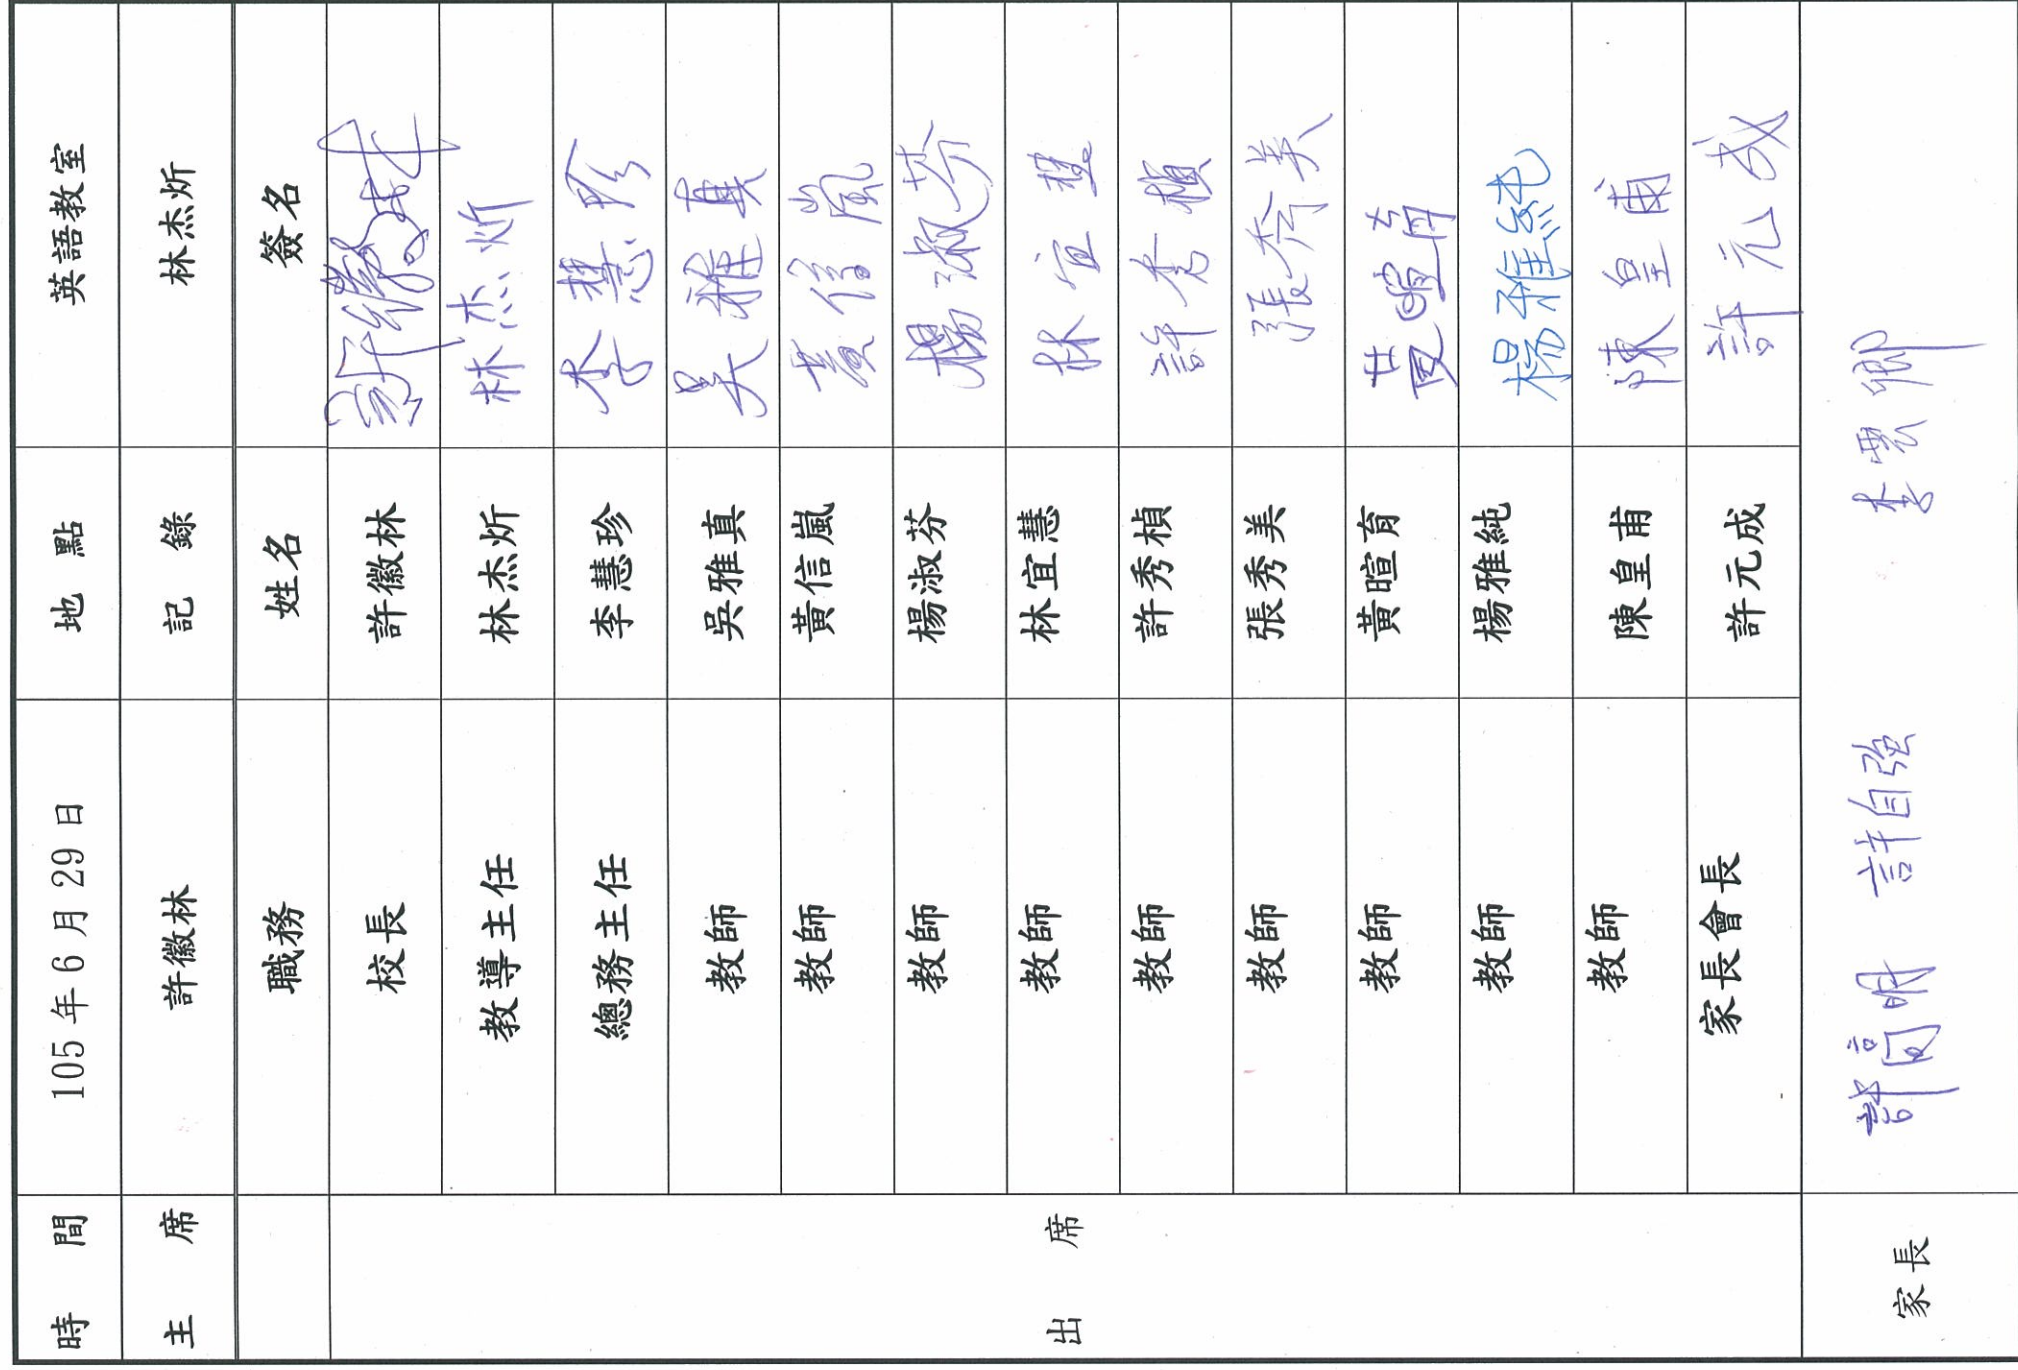 時間 105 年 6 月 29 日 地點 英語教室
主席 許徽林 記錄 林杰炘
職務 姓名 簽名
出席
校長 許徽林 許徽林
教導主任 林杰炘 林杰炘
總務主任 李慧珍 李慧珍
教師 吳雅真 吳雅真
教師 黃信嵐 黃信嵐
教師 楊淑芬 楊淑芬
教師 林宜慧 林宜慧
教師 許秀楨 許秀楨
教師 張秀美 張秀美
教師 黃暄育 黃暄育
教師 楊雅純 楊雅純
教師 陳皇甫 陳皇甫
家長會長 許元成 許元成
家長 許自強